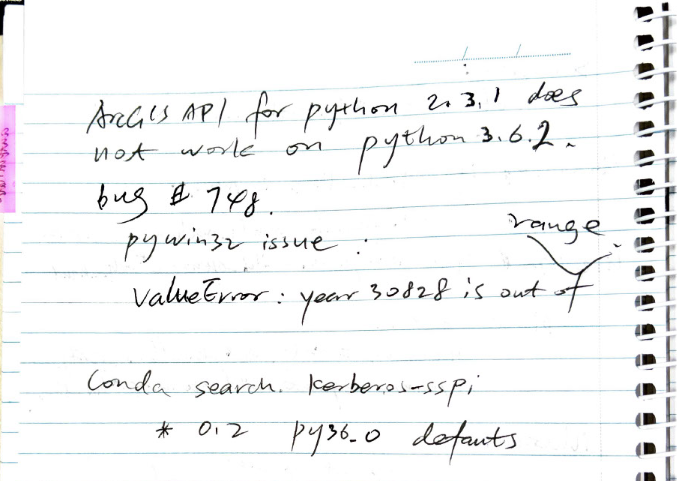 ArcGIS API for python 2.3.1 does
not work on python 3.6.2.
bug # 748.
pywin32 issue :
range.
ValueError : year 30828 is out of
Conda search. kerberos-sspi
* 0.2 py36_0 defauts